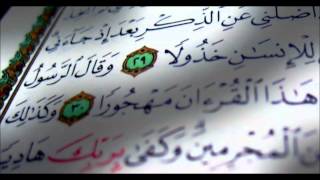 أَضَلَّنِى عَنِ ٱلذِّكْرِ بَعْدَ إِذْ جَآءَنِى
لِلْإِنسَٰنِ خَذُولًا ٢٩ وَقَالَ ٱلرَّسُولُ
هَٰذَا ٱلْقُرْءَانَ مَهْجُورًا ٣٠ وَكَذَٰلِكَ
ٱلْمُجْرِمِينَ وَكَفَىٰ بِرَبِّكَ هَادِيًا